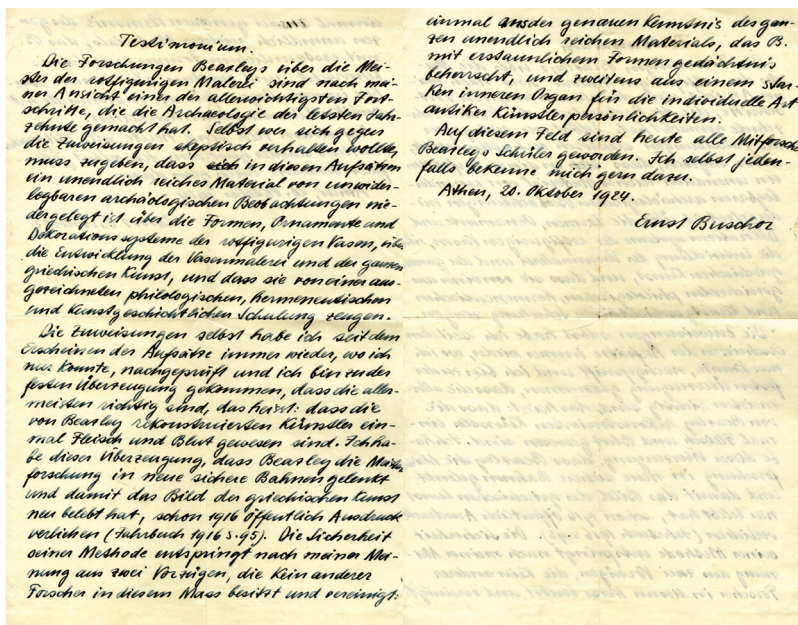 Testimonium.
Die Forschungen Beazleys über die Mei-
ster der rotfigurigen Malerei sind nach mei-
ner Ansicht einer der allerwichtigsten Fort-
schritte, die die Archaeologie der letzten Jahr-
zehnte gemacht hat. Selbst wer sich gegen
die Zuweisungen skeptisch verhalten wollte,
muss zugeben, dass in diesen Aufsätzen
ein unendlich reiches Material von unwider-
legbaren archäologischen Beobachtungen nie-
dergelegt ist über die Formen, Ornamente und
Dekorationssysteme der rotfigurigen Vasen, über
die Entwicklung der Vasenmalerei und der ganzen
griechischen Kunst, und dass sie von einer aus-
gezeichneten philologischen, hermeneutischen
und kunstgeschichtlichen Schulung zeugen.
Die Zuweisungen selbst habe ich seit dem
Erscheinen der Aufsätze immer wieder, wo ich
nur konnte, nachgeprüft und ich bin zu der
festen Überzeugung gekommen, dass die aller-
meisten richtig sind, das heisst: dass die
von Beazley rekonstruierten Künstler ein-
mal Fleisch und Blut gewesen sind. Ich ha-
be dieser Überzeugung, dass Beazley die Meister-
forschung in neue sichere Bahnen gelenkt
und damit das Bild der griechischen Kunst
neu belebt hat, schon 1916 öffentlich Ausdruck
verliehen (Jahrbuch 1916 S. 95). Die Sicherheit
seiner Methode entspringt nach meiner Mei-
nung aus zwei Vorzügen, die kein anderer
Forscher in diesem Mass besitzt und vereinigt:
einmal aus der genauen Kenntnis des gan-
zen unendlich reichen Materials, das B.
mit erstaunlichem Formengedächtnis
beherrscht, und zweitens aus einem star-
ken inneren Organ für die individuelle Art
antiker Künstlerpersönlichkeiten.
Auf diesem Feld sind heute alle Mitforscher
Beazleys Schüler geworden. Ich selbst jeden-
falls bekenne mich gern dazu.
Athen, 20. Oktober 1924.
Ernst Buschor